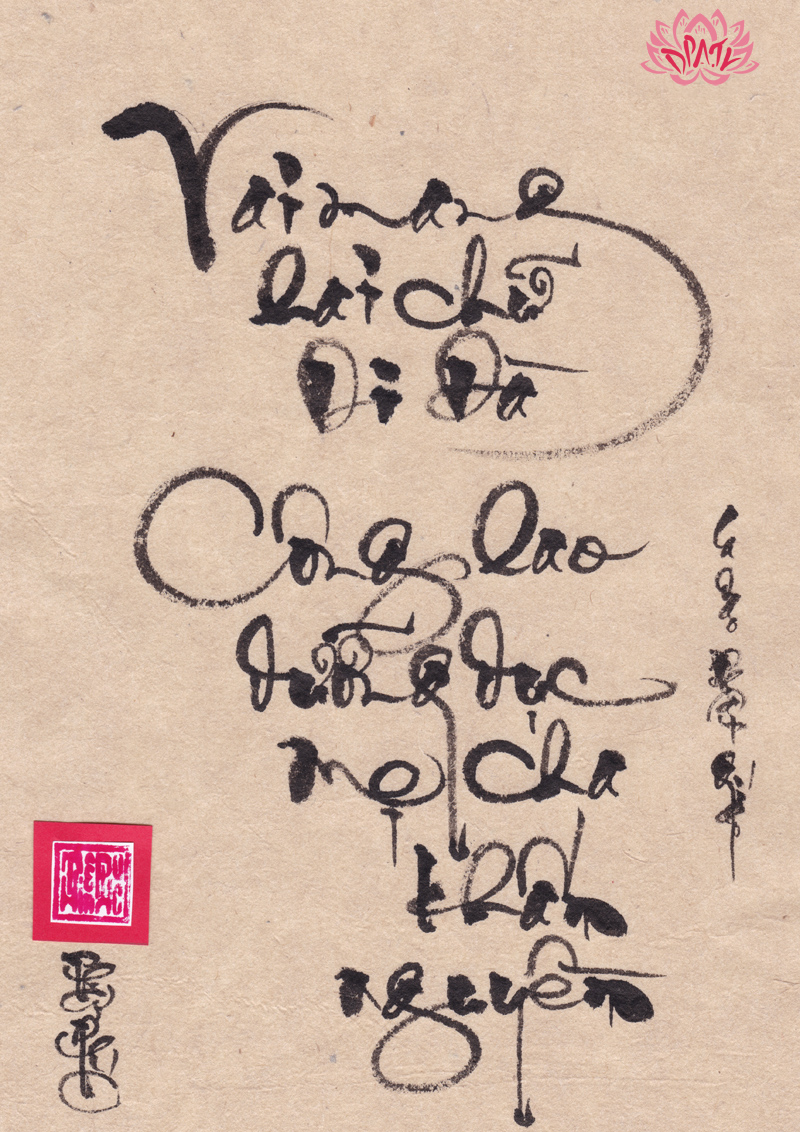 Vai mang
hai chữ
Di Đà
Công lao
dưỡng dục
mẹ cha
khấn
nguyền